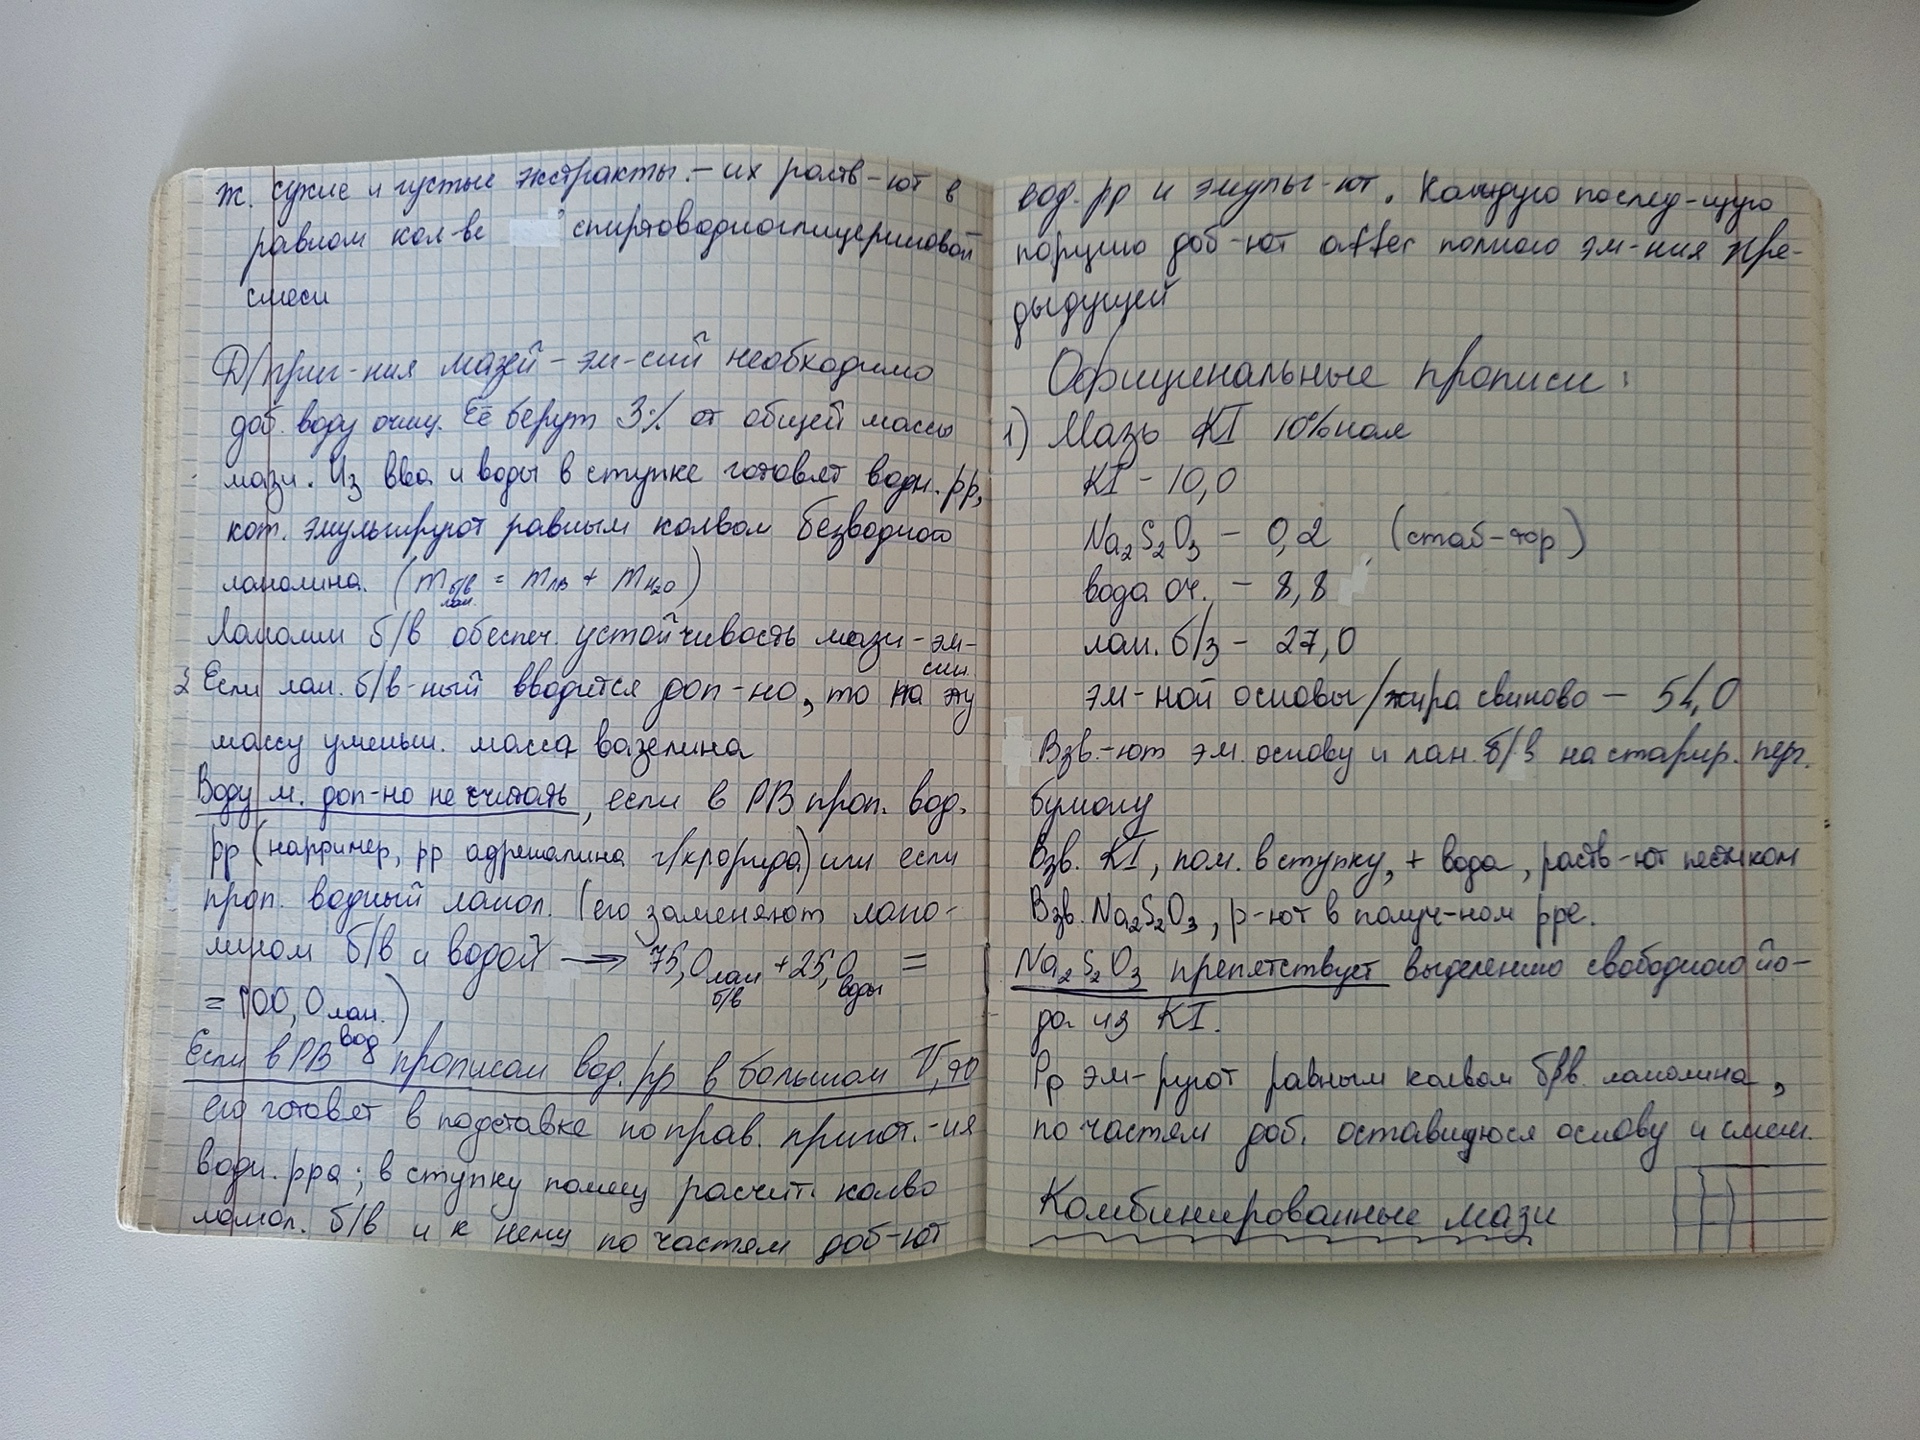 ж. сухие и густые экстракты. – их раств-ют в
равном кол-ве спиртоводноглицериновой
смеси
Д/приг-ния мазей – эм-сий необходимо
доб. воду очищ. Её берут 3% от общей массы
мази. Из вва и воды в ступке готовят водн. рр,
кот. эмульгируют равным колвом безводного
ланолина. (m б/в лан. = m ЛВ + m H₂O)
Ланолин б/в обеспеч. устойчивость мази – эм-
сии.
Если лан. б/в-ный вводится доп-но, то на эту
массу уменьш. масса вазелина
Воду м. доп-но не считать, если в РВ проп. вод.
рр (например, рр адреналина г/хлорида) или если
проп. водный ланол. (его заменяют лано-
лином б/в и водой → 75,0 лан б/в + 25,0 воды =
= 100,0 лан. вод)
Если в РВ прописан вод. рр в большом V, то
его готовят в подставке по прав. пригот.-ия
водн. рра; в ступку помещ расчит. колво
ланол. б/в и к нему по частям доб-ют
вод. рр и эмульг-ют. Каждую послед-щую
порцию доб-ют after полного эм-ния пре-
дыдущей
Официнальные прописи:
1) Мазь KI 10%ная
KI – 10,0
Na₂S₂O₃ – 0,2 (стаб-тор)
вода оч. – 8,8
лан. б/з – 27,0
эм-ной основы/жира свиново – 54,0
Взв.-ют эм. основу и лан. б/в на старир. перг.
бумагу
Взв. KI, пом. в ступку, + вода, раств-ют пестиком
Взв. Na₂S₂O₃, р-ют в получ-ном рре.
Na₂S₂O₃ препятствует выделению свободного йо-
да из KI.
Рр эм-руют равным колвом б/в. ланолина,
по частям доб. оставшуюся основу и смеш.
Комбинированные мази